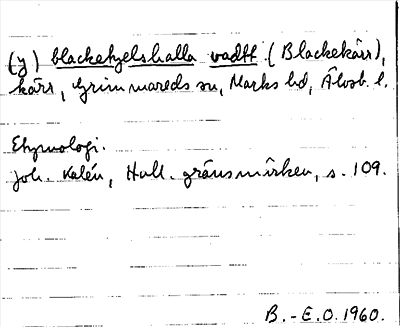 (y) blackehjelshalla vadtt (Blackekärr),
kärr, Grimmareds sn, Marks hd, Älvsb. l.
Etymologi.
Joh. Kalén, Hall. gränsmärken, s. 109.
B.-E.O. 1960.